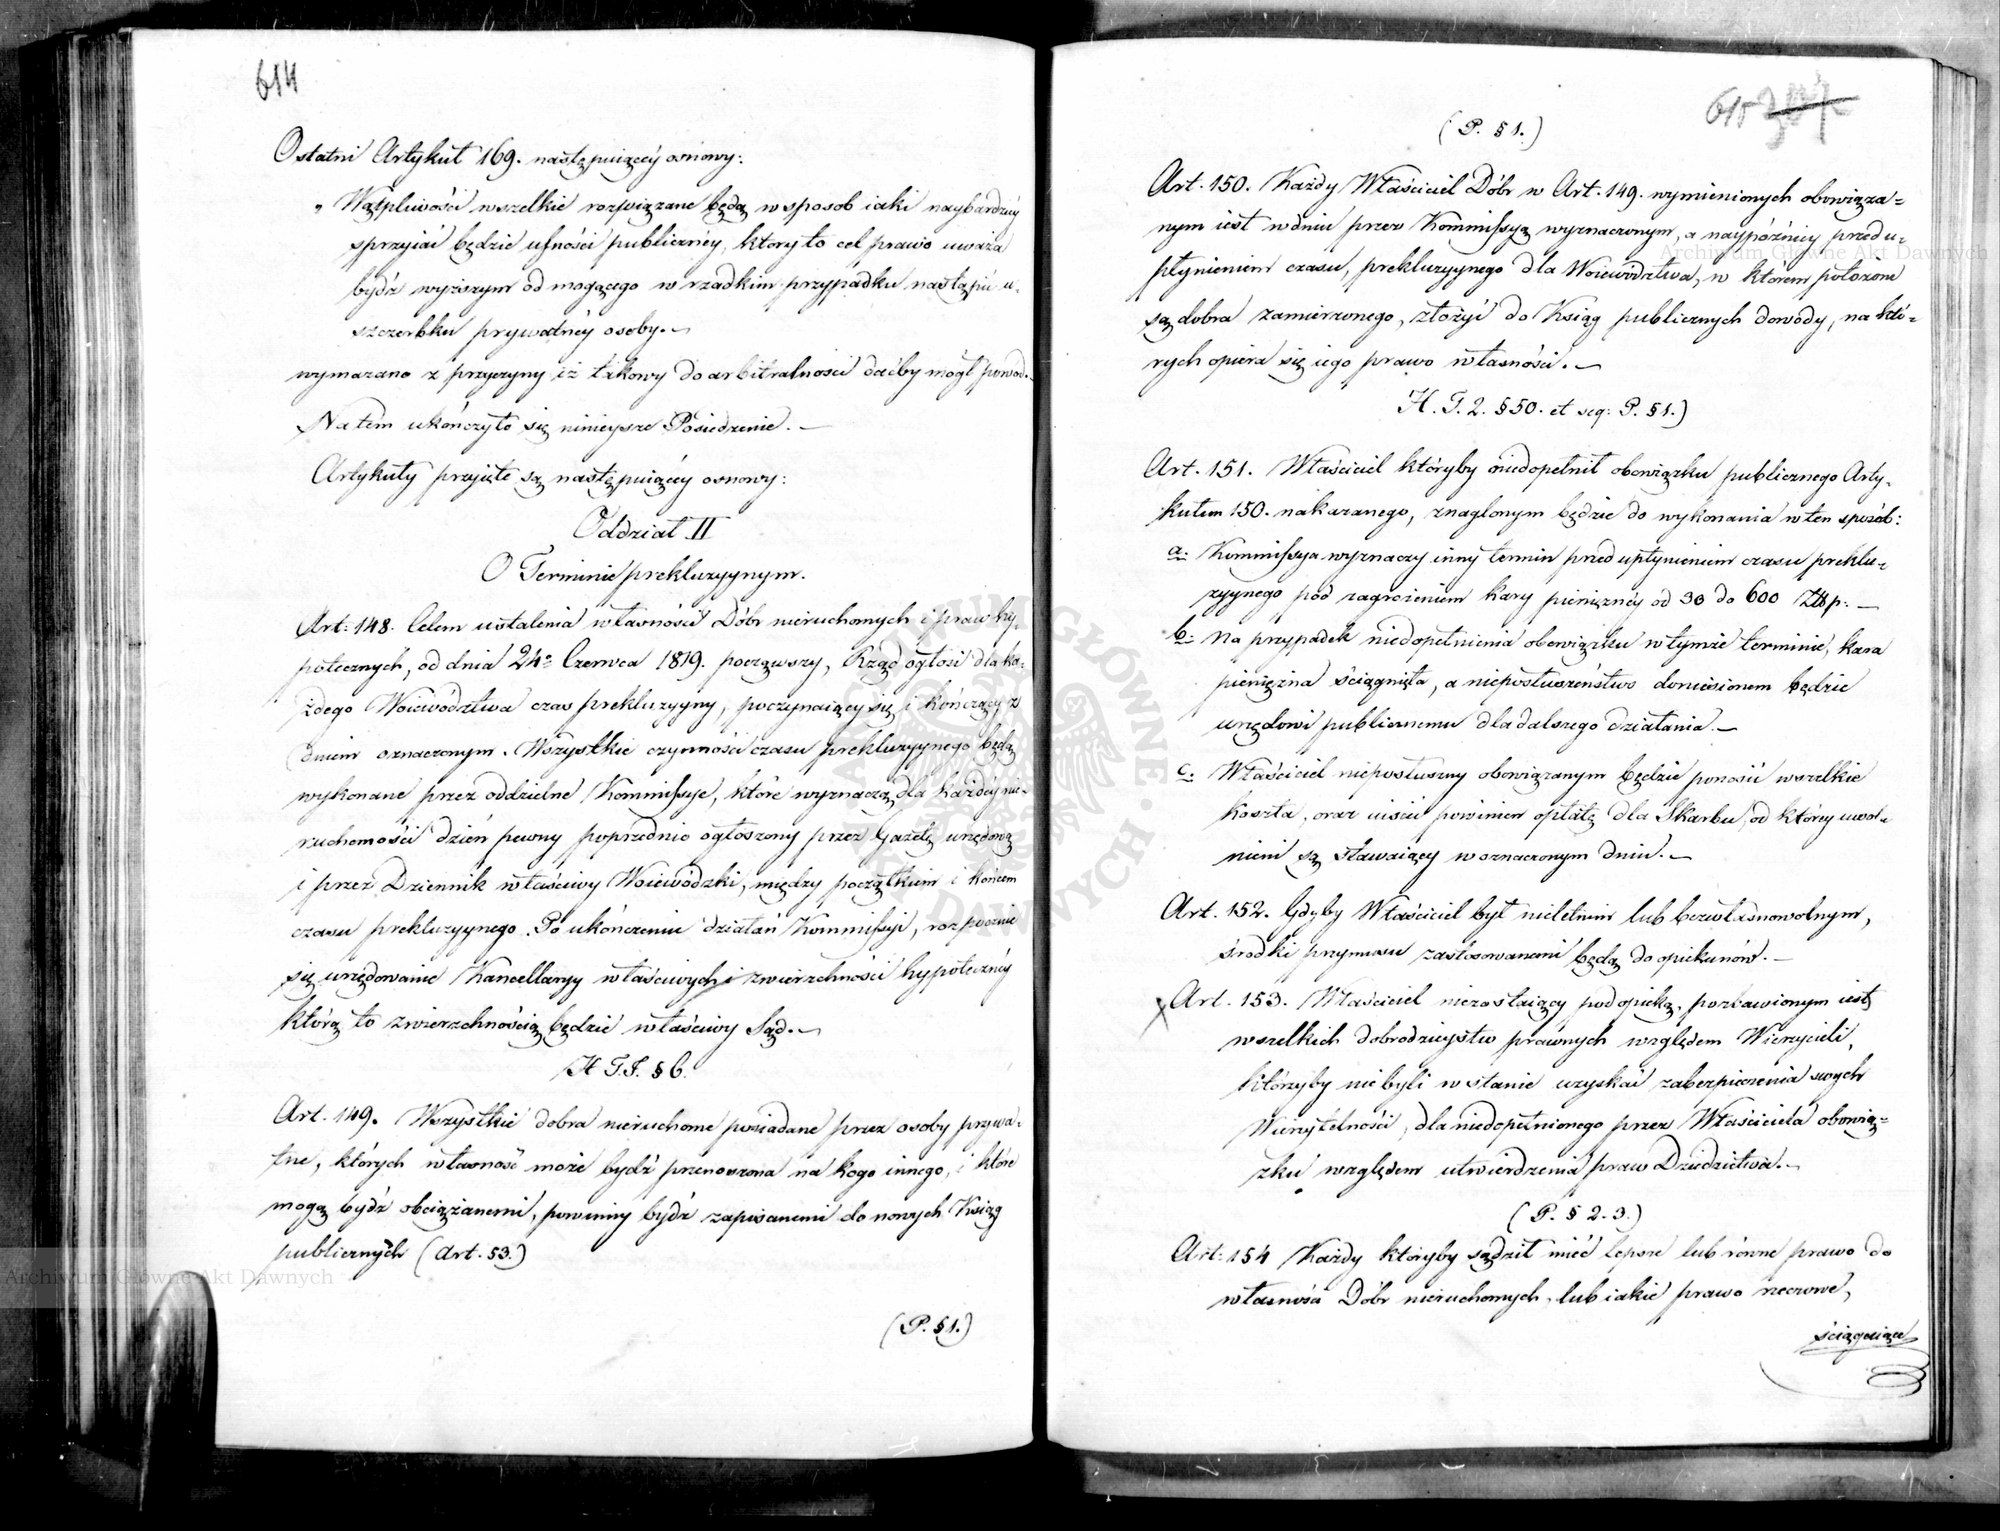 614
Ostatni Artykuł 169. następuiącéy osnowy:
„ Wątpliwości wszelkie rozwiązane będą w sposob iaki naybardziéy
sprzyiać będzie ufności publicznéy, który to cel prawo uważa
bydź wyższym od mogącego w rzadkim przypadku nastąpić u-
szczerbku prywatnéy osoby. —
wymazano z przyczyny iż takowy do arbitralności daćby mógł powód. —
Na tém ukończyło się ninieysze Posiedzenie. —
Artykuły przyięte są następuiącéy osnowy:
Oddział II
O Terminie prekluzyynym.
Art: 148. Celem ustalenia własności Dóbr nieruchomych i praw hy-
potecznych, od dnia 24º Czerwca 1819. począwszy, Rząd ogłosi dla ka-
żdego Woiewództwa czas prekluzyyny, poczynaiący się i kończący z
dniem oznaczonym. Wszystkie czynności czasu prekluzyynego będą
wykonane przez oddzielne Kommissye, które wyznaczą dla każdéy nie-
ruchomości dzień pewny poprzednio ogłoszony przez Gazetę urzędową
i przez Dziennik właściwy Woiewódzki, między początkiem i końcem
czasu prekluzyynego. Po ukończeniu działań Kommissyi, rozpocznie
się urzędowanie Kancellaryy właściwych i zwierzchności hypotecznéy
którą to zwierzchnością będzie właściwy Sąd. —
H T. I. § 6.
Art. 149. Wszystkie dobra nieruchome posiadane przez osoby prywa-
tne, których własność może bydź przenoszona na kogo innego, i które
mogą bydź obciążanemi, powinny bydź zapisanemi do nowych Ksiąg
publicznych (Art. 53.)
(P. § 1.)
615
(P. § 1.)
Art. 150. Każdy Właściciel Dóbr w Art. 149. wymienionych obowiąza-
nym iest w dniu przez Kommissyą wyznaczonym, a naypóźniéy przed u-
płynieniem czasu, prekluzyynego dla Woiewództwa, w którem położone
są dobra zamierzonego, złożyć do Ksiąg publicznych dowody, na któ-
rych opiera się iego prawo własności. —
H. T. 2. § 50. et seq: P. § 1.)
Art. 151. Właściciel któryby niedopełnił obowiązku publicznego Arty-
kułem 150. nakazanego, znaglonym będzie do wykonania w ten sposób:
a: Kommissya wyznaczy inny termin przed upłynieniem czasu preklu-
zyynego pod zagrożeniem kary pieniężnéy od 30 do 600 Złłp: —
b: Na przypadek niedopełnienia obowiązku w tymże terminie, kara
pieniężna ściągnięta, a nieposłuszeństwo doniesionem będzie
urzędowi publicznemu dla dalszego działania. —
c: Właściciel nieposłuszny obowiązanym będzie ponosić wszelkie
koszta, oraz uiścić powinien opłatę dla Skarbu, od któréy uwol-
nieni są stawaiący w oznaczonym dniu. —
Art. 152. Gdyby Właściciel był nieletnim lub bezwłasnowolnym,
środki przymusu zastosowanemi będą do opiekunów. —
Art. 153. Właściciel niezostaiący pod opieką, pozbawionym iest
wszelkich dobrodzieystw prawnych względem Wierzycieli,
którzyby niebyli w stanie uzyskać zabezpieczenia swych
Wierzytelności, dla niedopełnionego przez Właściciela obowią-
zku względem utwierdzenia praw Dziedzictwa. —
(P. § 2. 3.)
Art: 154 Każdy któryby sądził mieć lepsze lub równe prawo do
własności Dóbr nieruchomych, lub iakie prawo rzeczowe,
ściągaiące
Archiwum Główne Akt Dawnych
Archiwum Główne Akt Dawnych
ARCHIWUM GŁÓWNE AKT DAWNYCH